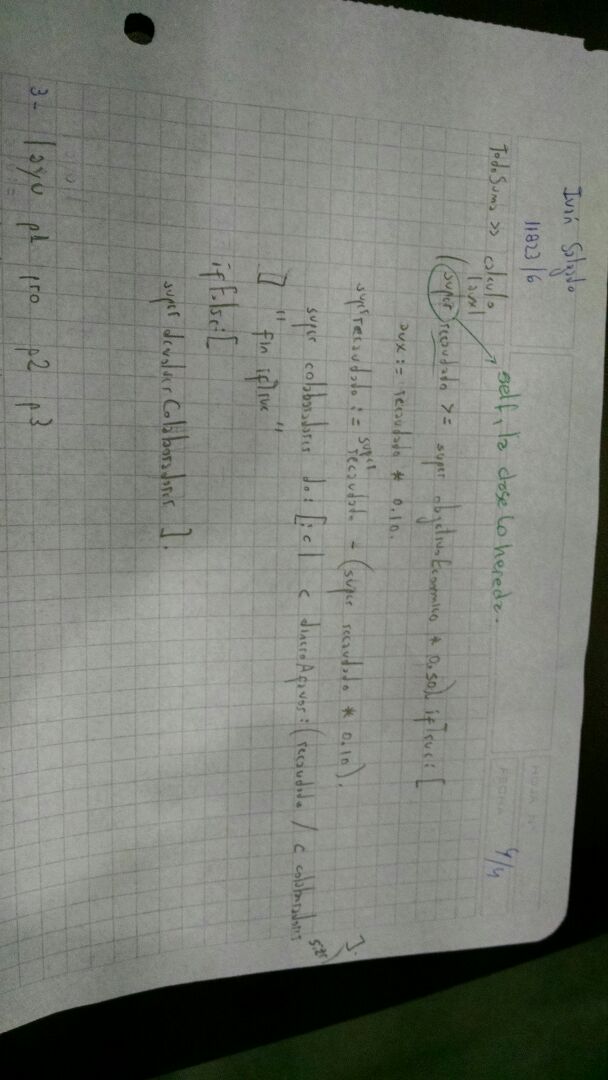 Iván Salgado
11823/6
HOJA N°
FECHA 4/4
self, la clase lo hereda.
TodoSuma >> calculo
|aux|
(super recaudado >= super objetivoEconomico * 0.50) ifTrue: [
aux := recaudado * 0.10.
super recaudado := super recaudado - (super recaudado * 0.10).
super colaboradores do: [:c| c dineroAfavor: (recaudado / c colaboradores size ].
] "fin ifTrue"
ifFalse: [
super devolverColaboradores ].
3- |ayu p1 pro p2 p3